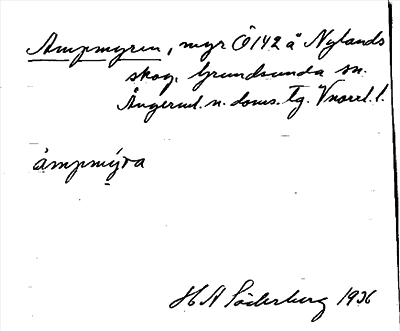 Ampmyren, myr Ö142 å Nylands
skog, Grundsunda sn.
Ångerml. n. doms. Tg. Vnorrl. l.
ampmýra
H A Söderberg 1936